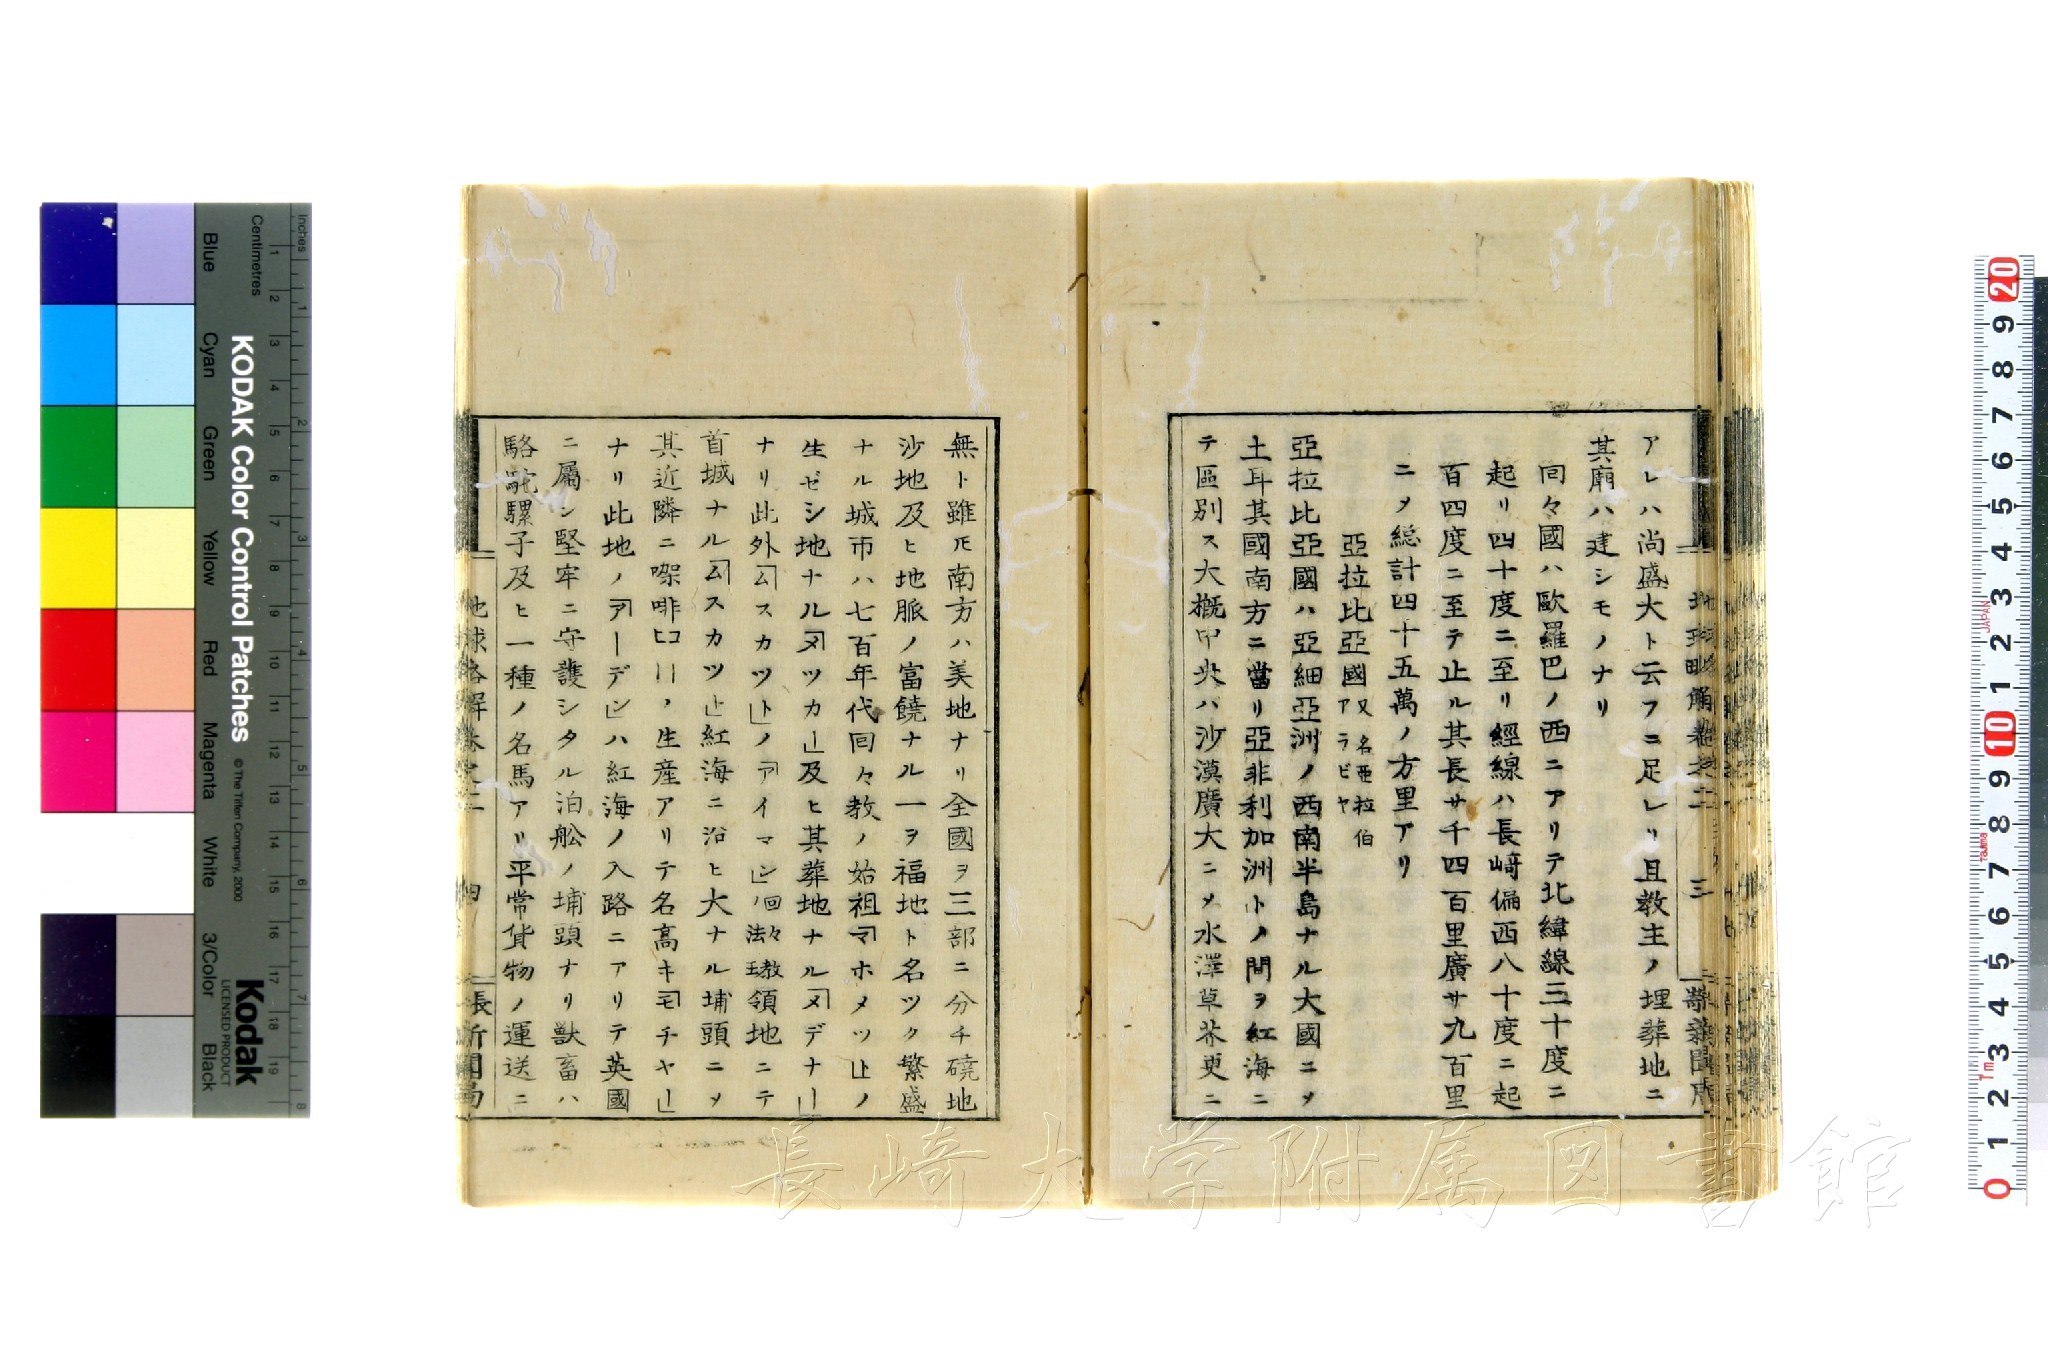 アレハ尚盛大ト云フニ足レリ且教主ノ埋葬地ニ
其廟ハ建シモノナリ
回々國ハ歐羅巴ノ西ニアリテ北緯線三十度ニ
起リ四十度ニ至リ經線ハ長崎偏西八十度ニ起
百四度ニ至テ止ル其長サ千四百里廣サ九百里
ニメ総計四十五萬ノ方里アリ
亞拉比亞國又名亜拉伯アラビヤ
亞拉比亞國ハ亞細亞洲ノ西南半島ナル大國ニメ
土耳其國南方ニ當リ亞非利加洲トノ間ヲ紅海ニ
テ區別ス大概中央ハ沙漠廣大ニメ水澤草木更ニ
三
無ト雖𪜈南方ハ美地ナリ全國ヲ三部ニ分チ磽地
沙地及ヒ地脈ノ富饒ナル一ヲ福地ト名ツク繁盛
ナル城市ハ七百年代回々教ノ始祖「マホメツト」ノ
生ゼシ地ナル「メツカ」及ヒ其葬地ナル「メデナ」
ナリ此外「ムスカツト」ノ「アイマン」ノ回々教法領地ニテ
首城ナル「ムスカツト」紅海ニ沿ヒ大ナル埔頭ニメ
其近隣ニ喫啡コヒーノ生産アリテ名高キ「モチヤ」
ナリ此地ノ「アーデン」ハ紅海ノ入路ニアリテ英國
ニ屬シ堅牢ニ守護シタル泊舩ノ埔頭ナリ獸畜ハ
駱駝騾子及ヒ一種ノ名馬アリ平常貨物ノ運送ニ
地球略解卷之二 四 長新聞局
KODAK Color Control Patches
© The Tiffen Company, 2000
Kodak
LICENSED PRODUCT
Inches
Centimetres
Blue Cyan Green Yellow Red Magenta White 3/Color Black
1 2 3 4 5 6 7 8 9 10 11 12 13 14 15 16 17 18 19
1 2 3 4 5 6 7 8
20 9 8 7 6 5 4 3 2 1 10 9 8 7 6 5 4 3 2 1 0
長崎大学附属図書館